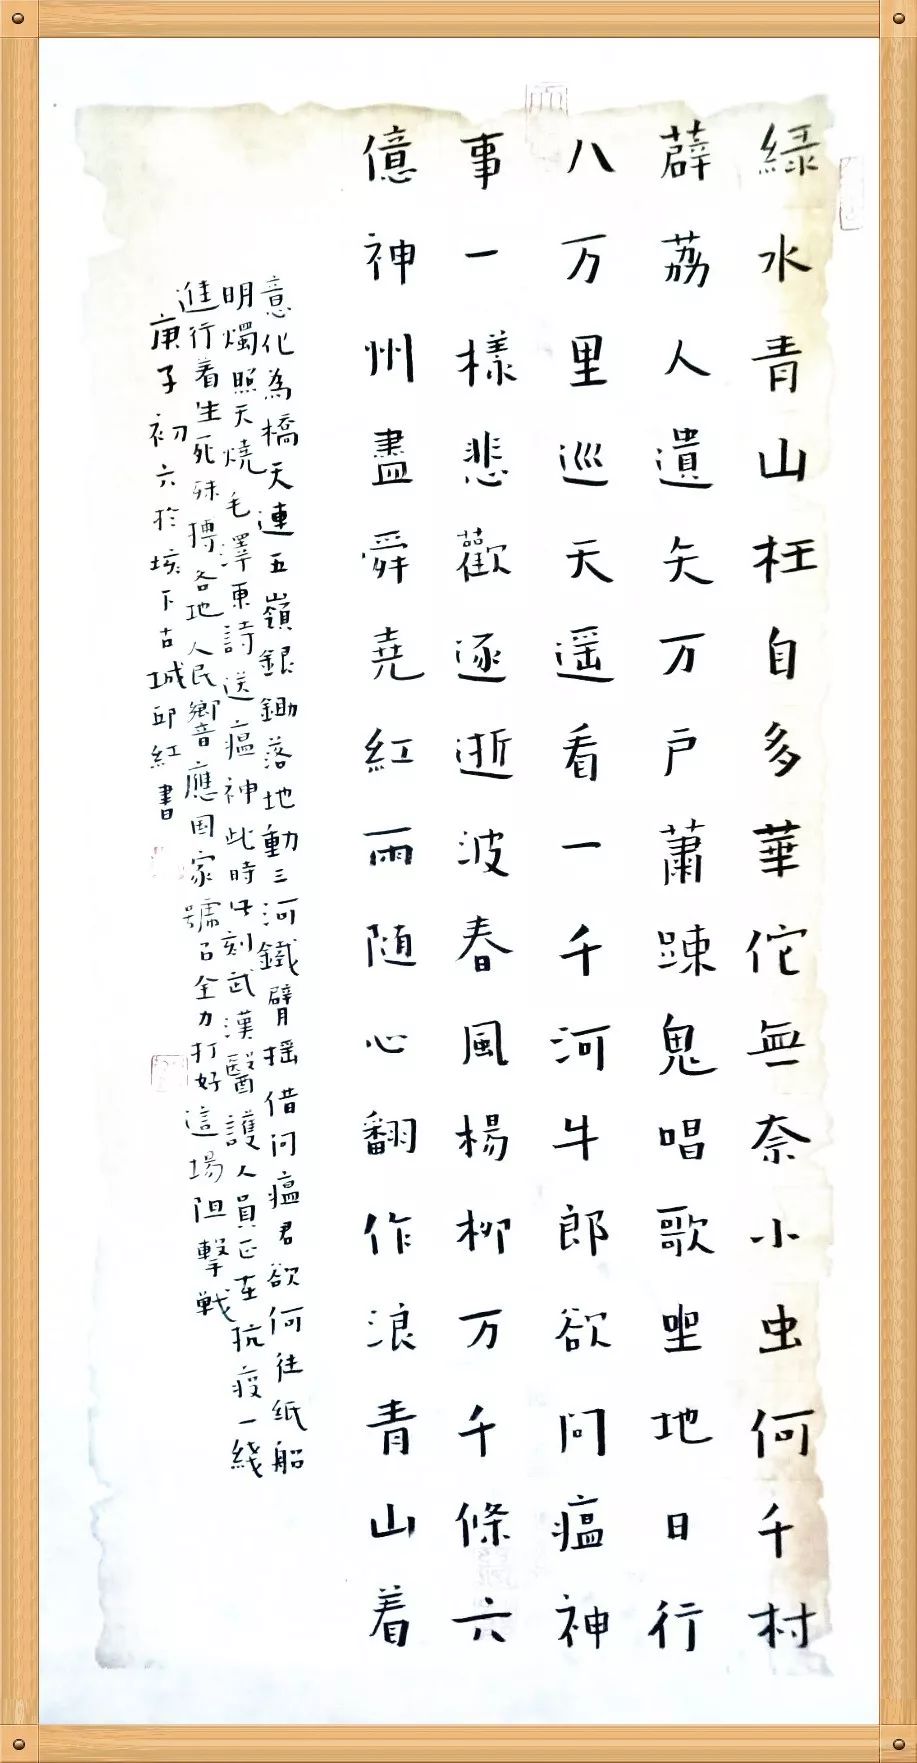 綠水青山枉自多華佗無奈小虫何千村
薜荔人遺矢万户蕭踈鬼唱歌坐地日行
八万里巡天遥看一千河牛郎欲问瘟神
事一樣悲歡逐逝波春風楊柳万千條六
億神州盡舜堯紅雨随心翻作浪青山着
意化為橋天連五嶺銀鋤落地動三河鐵臂摇借问瘟君欲何往纸船
明燭照天燒毛澤東詩送瘟神此時此刻武漢醫護人員正在抗疫一綫
進行着生死殊搏各地人民響應国家號召全力打好這場阻擊戦
庚子初六於垓下古城邱紅書